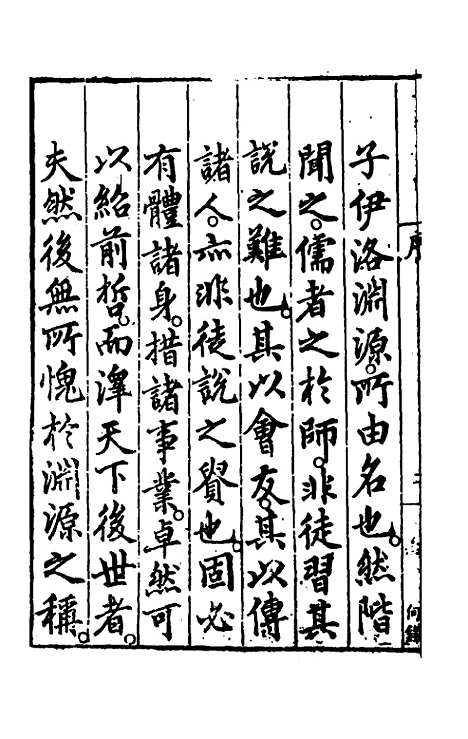 子伊洛淵源所由名也然階
聞之儒者之於師非徒習其
說之難也其以會友其以傳
諸人亦非徒說之貴也固必
有體諸身措諸事業卓然可
以紹前哲而澤天下後世者
夫然後無所愧於淵源之稱
序
何鎡